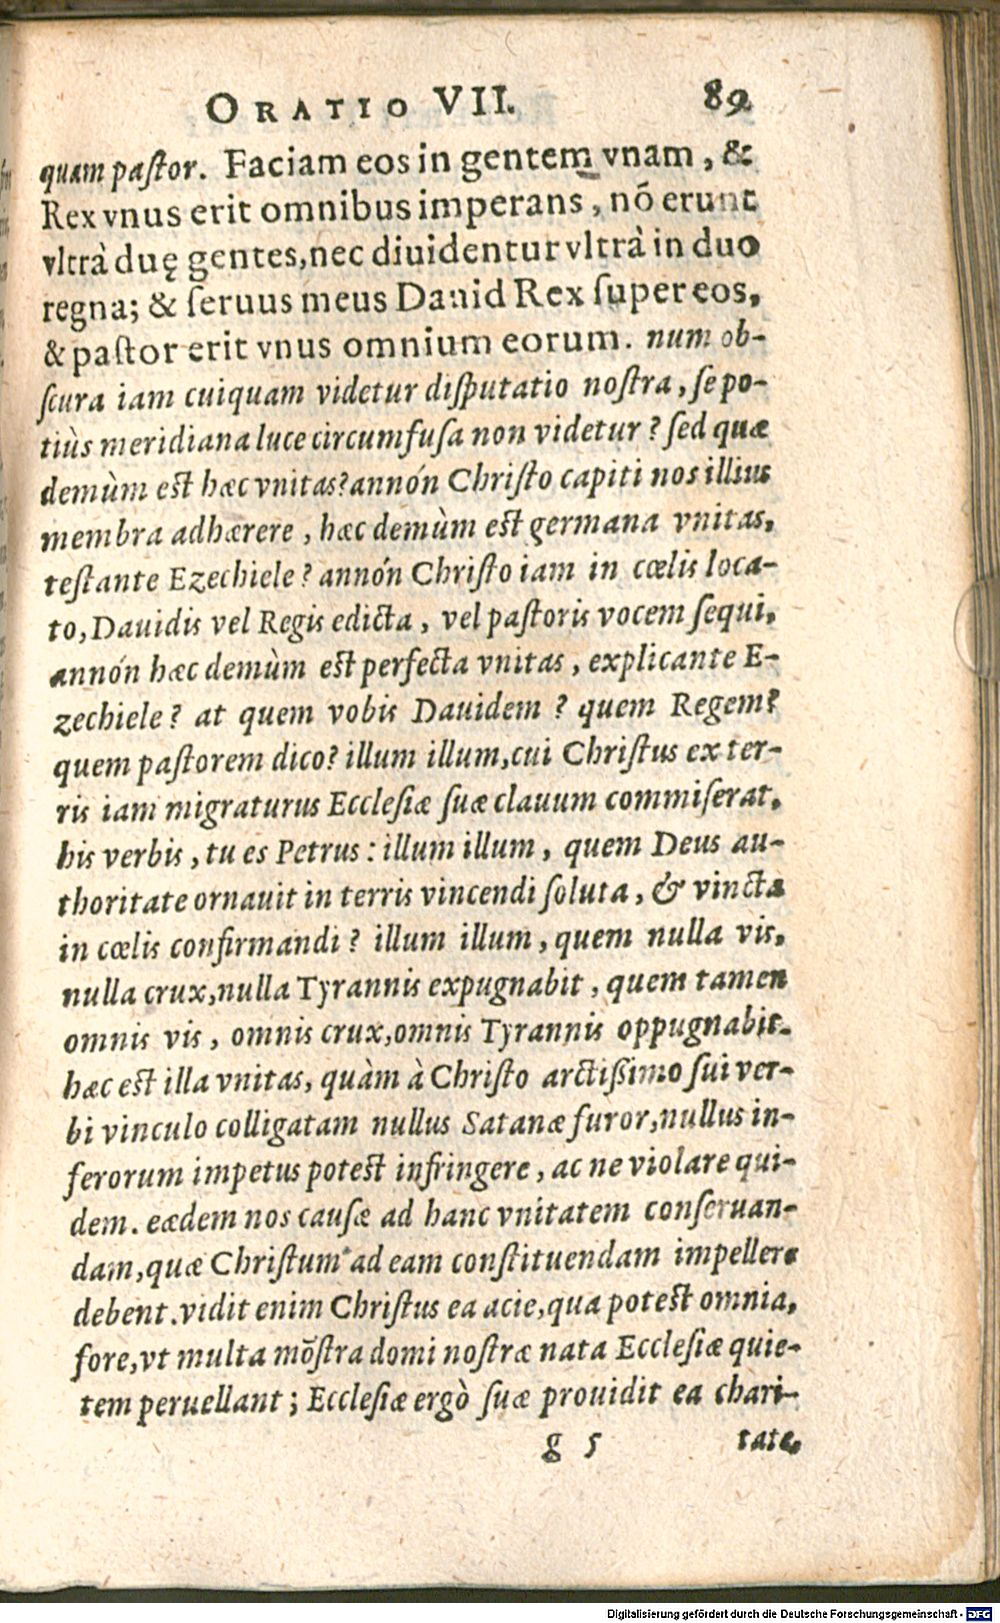 ORATIO VII. 89
quam pastor. Faciam eos in gentem vnam, &
Rex vnus erit omnibus imperans, nõ erunt
vltrà duę gentes, nec diuidentur vltrà in duo
regna; & seruus meus Dauid Rex super eos,
& pastor erit vnus omnium eorum. num ob-
scura iam cuiquam videtur disputatio nostra, se po-
tiùs meridiana luce circumfusa non videtur? sed quæ
demùm est hæc vnitas? annón Christo capiti nos illius
membra adhærere, hæc demùm est germana vnitas,
testante Ezechiele? annón Christo iam in cœlis loca-
to, Dauidis vel Regis edicta, vel pastoris vocem sequi,
annón hæc demùm est perfecta vnitas, explicante E-
zechiele? at quem vobis Dauidem? quem Regem?
quem pastorem dico? illum illum, cui Christus ex ter-
ris iam migraturus Ecclesiæ suæ clauum commiserat,
his verbis, tu es Petrus: illum illum, quem Deus au-
thoritate ornauit in terris vincendi soluta, & vincta
in cœlis confirmandi? illum illum, quem nulla vis,
nulla crux, nulla Tyrannis expugnabit, quem tamen
omnis vis, omnis crux, omnis Tyrannis oppugnabit.
hæc est illa vnitas, quàm à Christo arctißimo sui ver-
bi vinculo colligatam nullus Satanæ furor, nullus in-
ferorum impetus potest infringere, ac ne violare qui-
dem. eædem nos causæ ad hanc vnitatem conseruan-
dam, quæ Christum ad eam constituendam impellere
debent. vidit enim Christus ea acie, qua potest omnia,
fore, vt multa mõstra domi nostræ nata Ecclesiæ quie-
tem peruellant; Ecclesiæ ergò suæ prouidit ea chari-
g 5 tate,
Digitalisierung gefördert durch die Deutsche Forschungsgemeinschaft - DFG